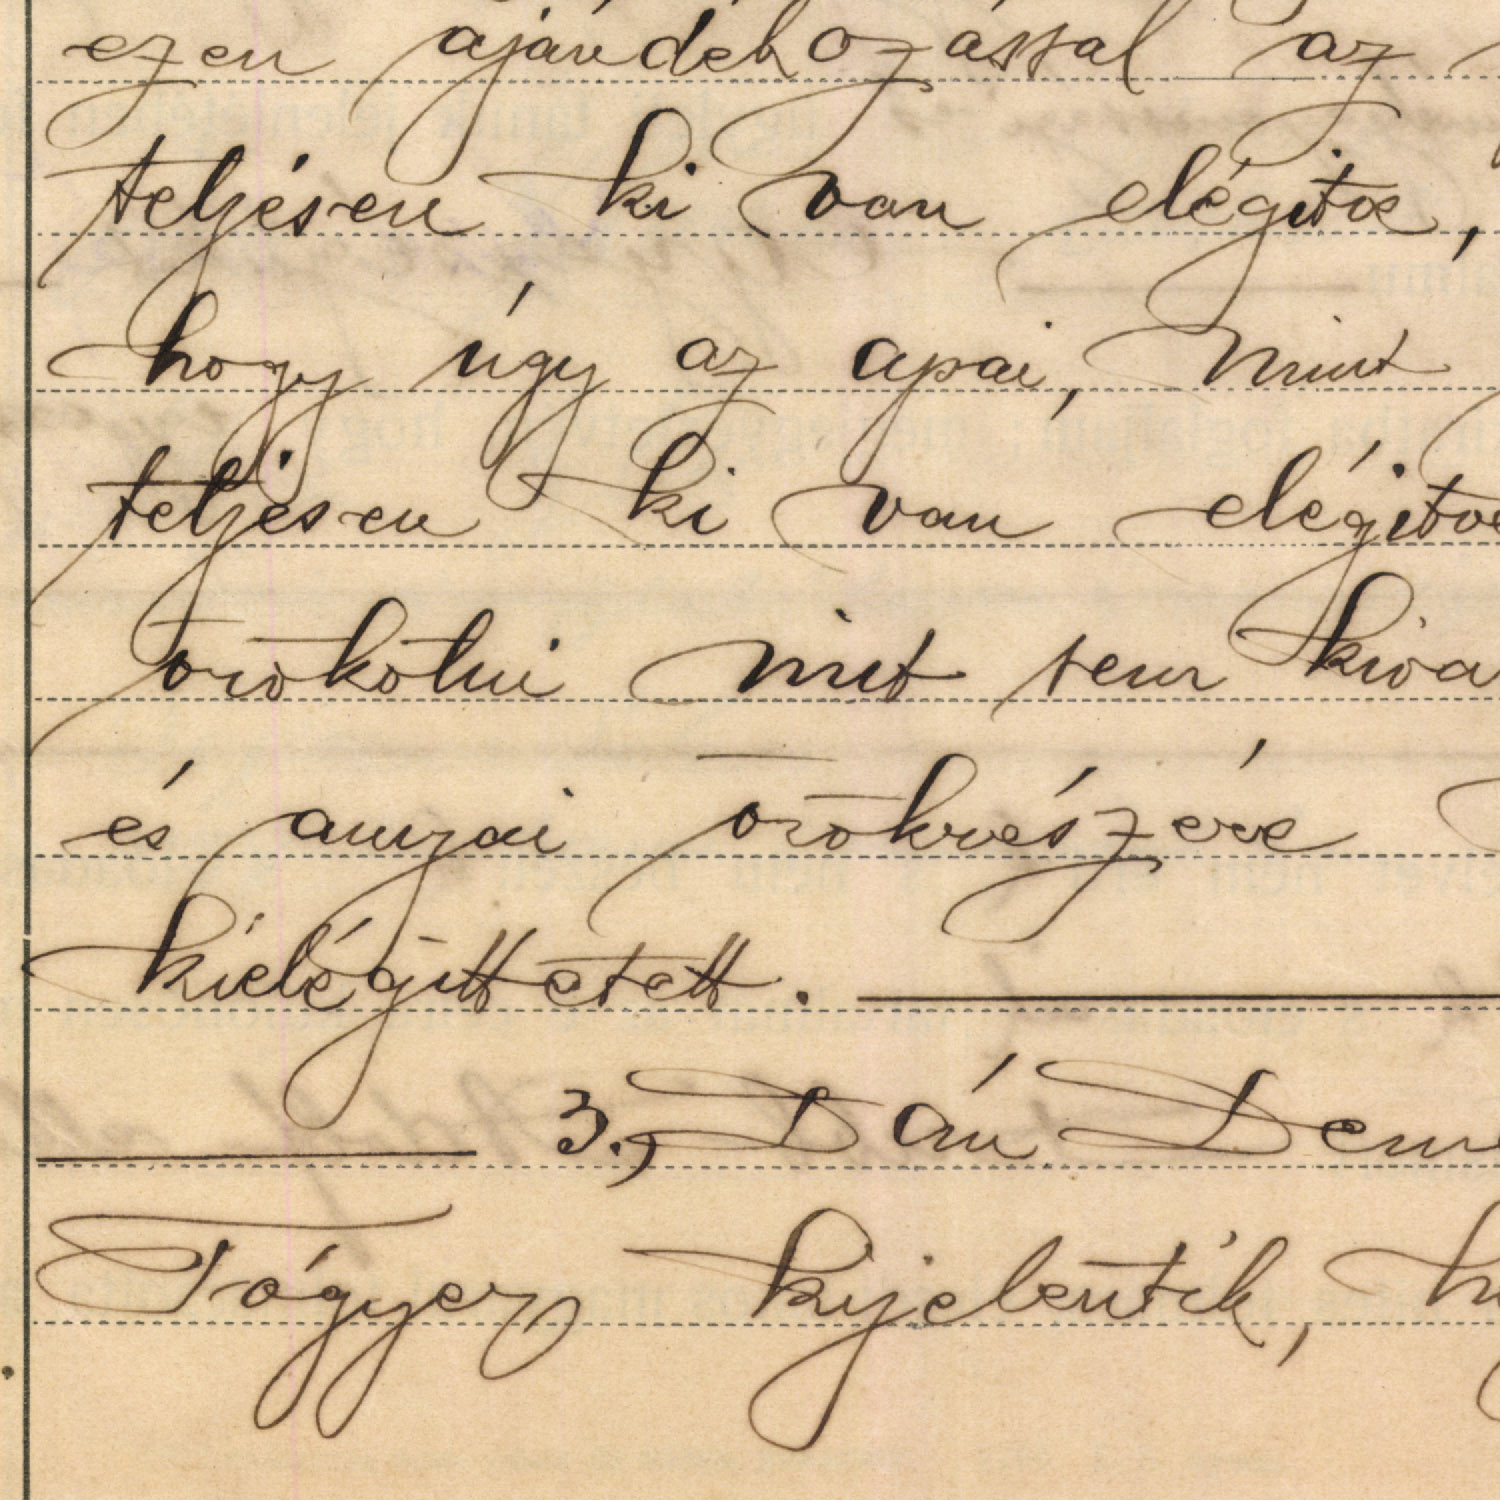 ezen ajándékozással az
teljésen ki van elégitve,
hogy úgy az apai, mint
teljésen ki van elégitve
örökölni mit sem kiva
és anyai örökrészére
kielégíttetett.
3., Dán Deme
Tógyer kijelentik, h